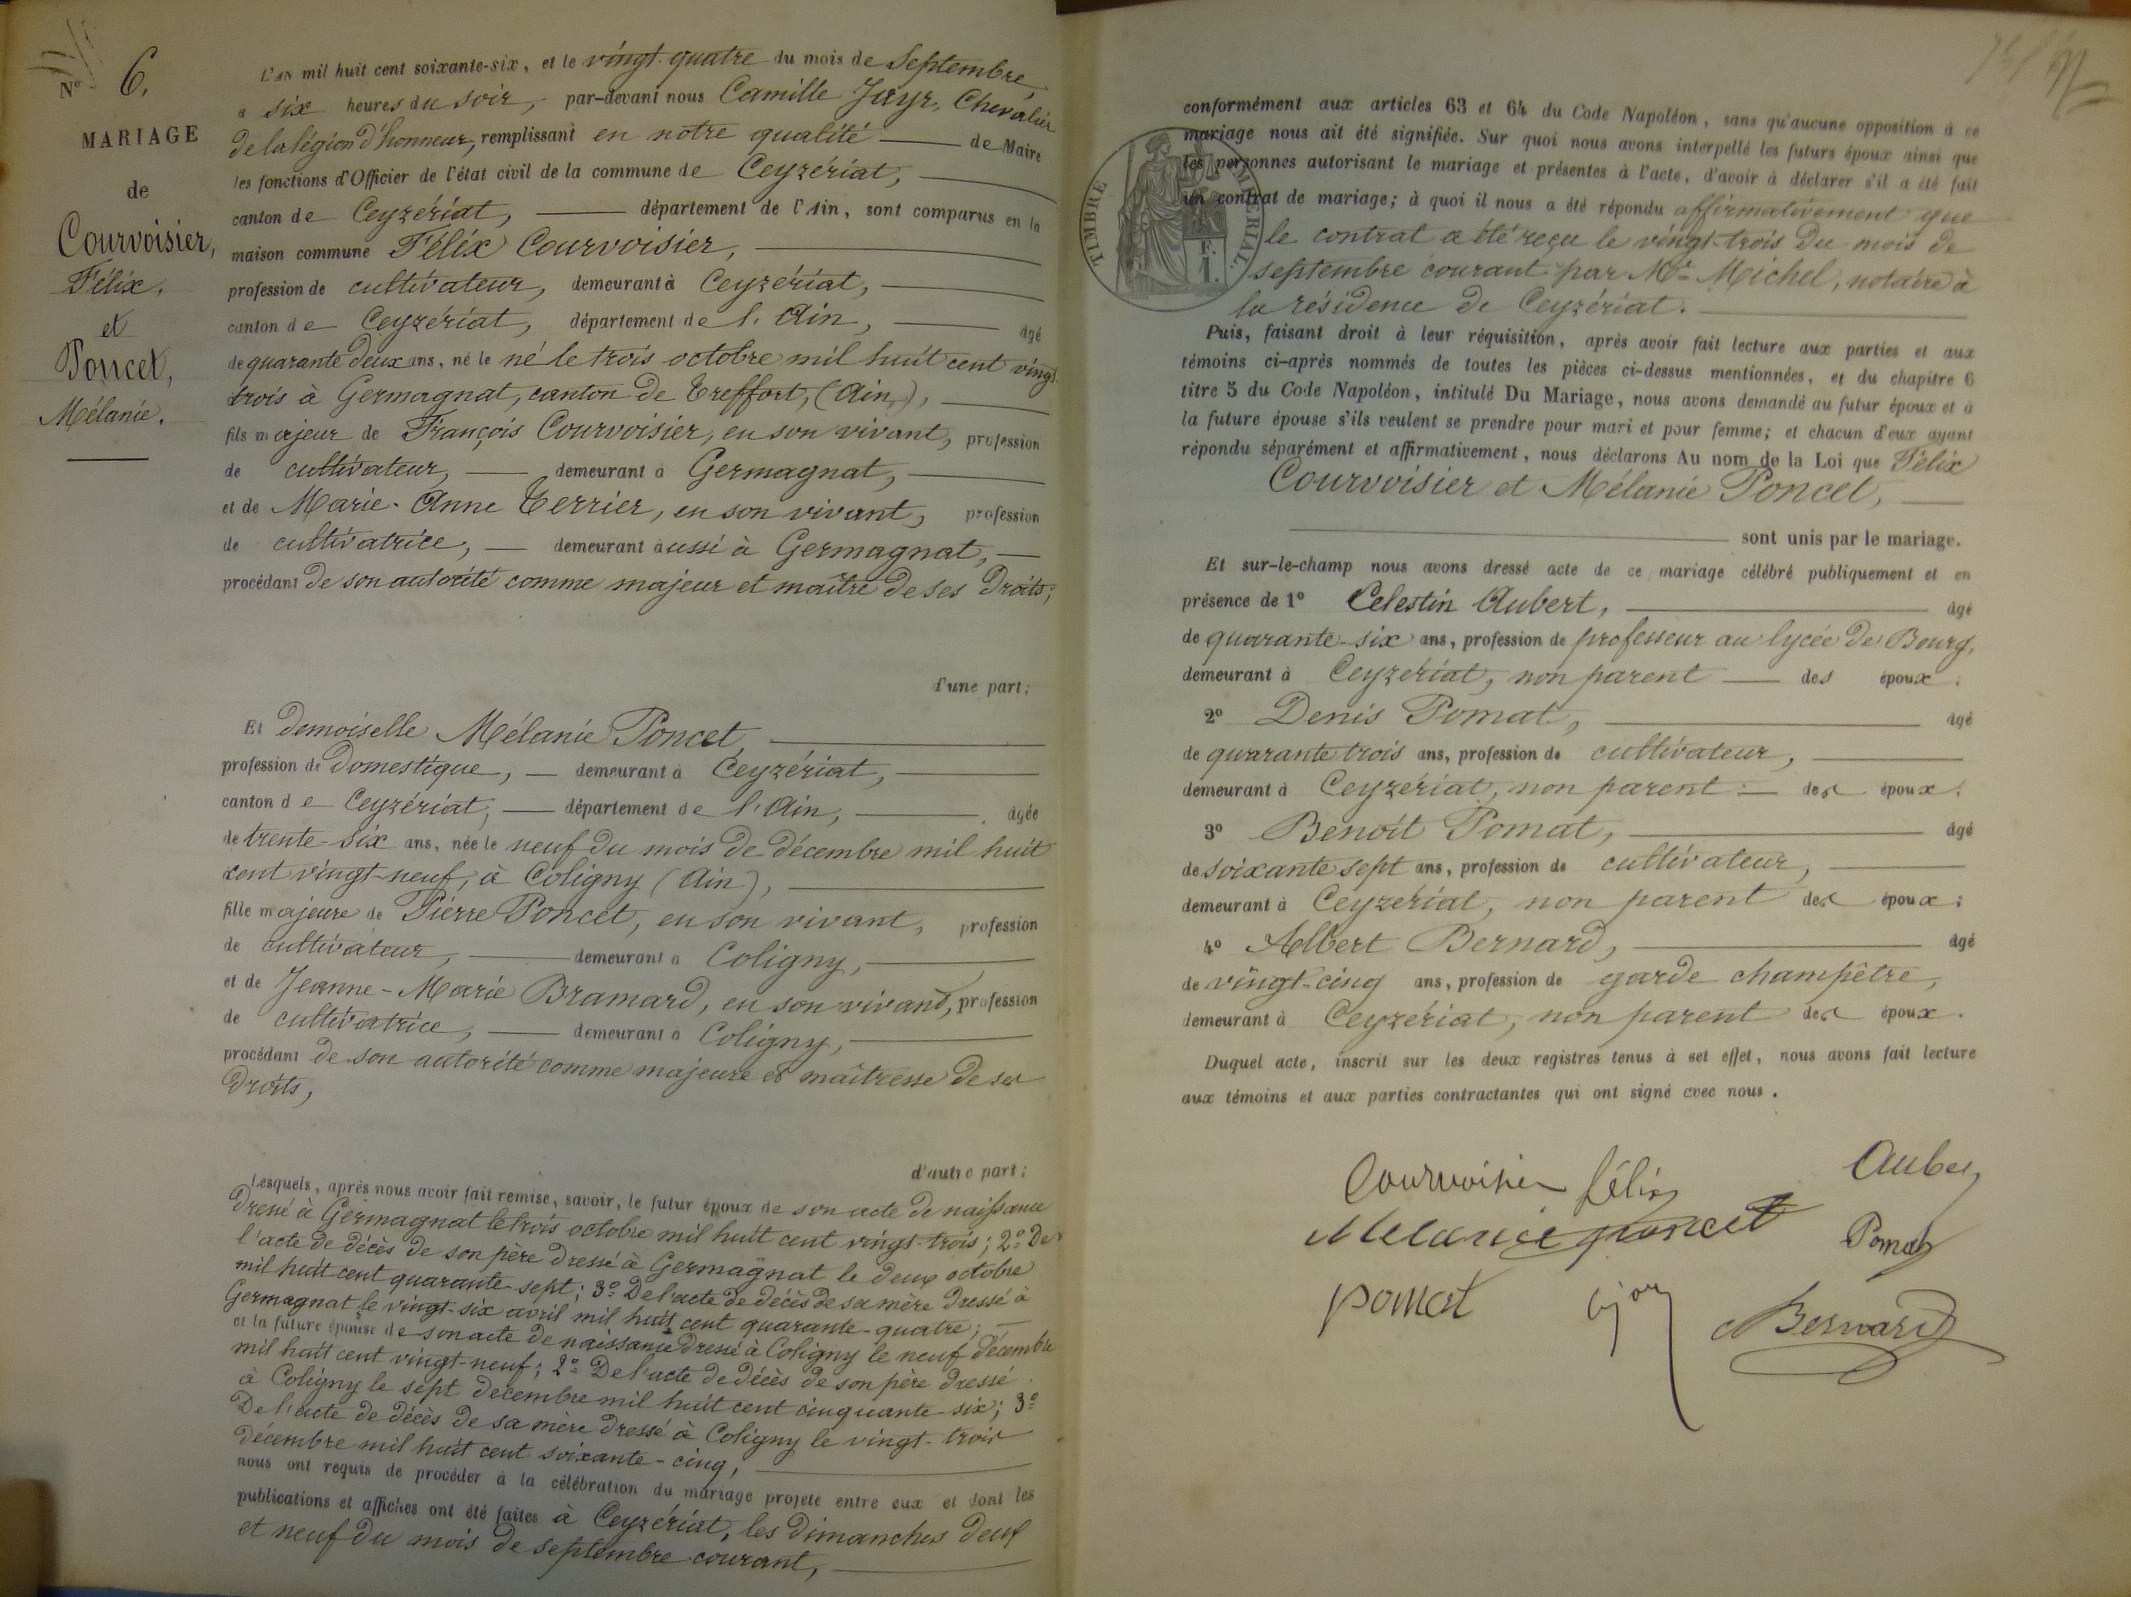 Nº 6.
MARIAGE
de
Courvoisier,
Félix,
et
Poncet,
Mélanie.
L'AN mil huit cent soixante-six, et le vingt-quatre du mois de Septembre,
a six heures du soir, par-devant nous Camille Jayr, Chevalier
de la légion d'honneur, remplissant en notre qualité de Maire
les fonctions d'Officier de l'état civil de la commune de Ceyzériat,
canton de Ceyzériat, département de l'Ain, sont comparus en la
maison commune Félix Courvoisier,
profession de cultivateur, demeurant à Ceyzériat,
canton de Ceyzériat, département de l'Ain, âgé
de quarante deux ans, né le né le trois octobre mil huit cent vingt
trois à Germagnat, canton de Treffort, (Ain),
fils majeur de François Courvoisier, en son vivant, profession
de cultivateur, demeurant à Germagnat,
et de Marie-Anne Terrier, en son vivant, profession
de cultivatrice, demeurant aussi à Germagnat,
procédant de son autorité comme majeur et maître de ses droits;
d'une part;
Et demoiselle Mélanie Poncet,
profession de domestique, demeurant à Ceyzériat,
canton de Ceyzériat, département de l'Ain, âgée
de trente-six ans, née le neuf du mois de décembre mil huit
cent vingt-neuf, à Coligny (Ain),
fille majeure de Pierre Poncet, en son vivant, profession
de cultivateur, demeurant à Coligny,
et de Jeanne-Marie Bramard, en son vivant, profession
de cultivatrice, demeurant à Coligny,
procédant de son autorité comme majeure et maîtresse de ses
droits,
d'autre part;
Lesquels, après nous avoir fait remise, savoir, le futur époux de son acte de naissance
dressé à Germagnat le trois octobre mil huit cent vingt-trois; 2º De
l'acte de décès de son père dressé à Germagnat le deux octobre
mil huit cent quarante-sept; 3º De l'acte de décès de sa mère dressé à
Germagnat le vingt-six avril mil huit cent quarante-quatre;
et la future épouse de son acte de naissance dressé à Coligny le neuf décembre
mil huit cent vingt-neuf; 2º De l'acte de décès de son père dressé
à Coligny le sept decembre mil huit cent cinquante-six; 3º
De l'acte de décès de sa mère dressé à Coligny le vingt-trois
décembre mil huit cent soixante-cinq,
nous ont requis de procéder à la célébration du mariage projeté entre eux et dont les
publications et affiches ont été faites à Ceyzériat, les dimanches deux
et neuf du mois de septembre courant,
conformément aux articles 63 et 64 du Code Napoléon, sans qu'aucune opposition à ce
mariage nous ait été signifiée. Sur quoi nous avons interpellé les futurs époux ainsi que
les personnes autorisant le mariage et présentes à l'acte, d'avoir à déclarer s'il a été fait
un contrat de mariage; à quoi il nous a été répondu affirmativement que
le contrat a été reçu le vingt-trois du mois de
septembre courant par Me Michel, notaire à
la résidence de Ceyzériat.
TIMBRE IMPÉRIAL
F.
1.
Puis, faisant droit à leur réquisition, après avoir fait lecture aux parties et aux
témoins ci-après nommés de toutes les pièces ci-dessus mentionnées, et du chapitre 6
titre 5 du Code Napoléon, intitulé Du Mariage, nous avons demandé au futur époux et à
la future épouse s'ils veulent se prendre pour mari et pour femme; et chacun d'eux ayant
répondu séparément et affirmativement, nous déclarons Au nom de la Loi que Félix
Courvoisier et Mélanie Poncet,
sont unis par le mariage.
Et sur-le-champ nous avons dressé acte de ce mariage célébré publiquement et en
présence de 1º Celestin Aubert, âgé
de quarante-six ans, profession de professeur au lycée de Bourg,
demeurant à Ceyzériat, non parent des époux;
2º Denis Pomat, âgé
de quarante trois ans, profession de cultivateur,
demeurant à Ceyzériat, non parent des époux;
3º Benoit Pomat, âgé
de soixante sept ans, profession de cultivateur,
demeurant à Ceyzériat, non parent des époux;
4º Albert Bernard, âgé
de vingt-cinq ans, profession de garde champêtre,
demeurant à Ceyzériat, non parent des époux.
Duquel acte, inscrit sur les deux registres tenus à cet effet, nous avons fait lecture
aux témoins et aux parties contractantes qui ont signé avec nous.
Courvoisier félix
Aubert
Melanie poncet
Pomat
pomat
Bernard